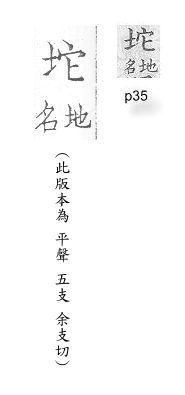 坨
地名
（此版本為 平聲 五支 余支切）
坨
地名
p35